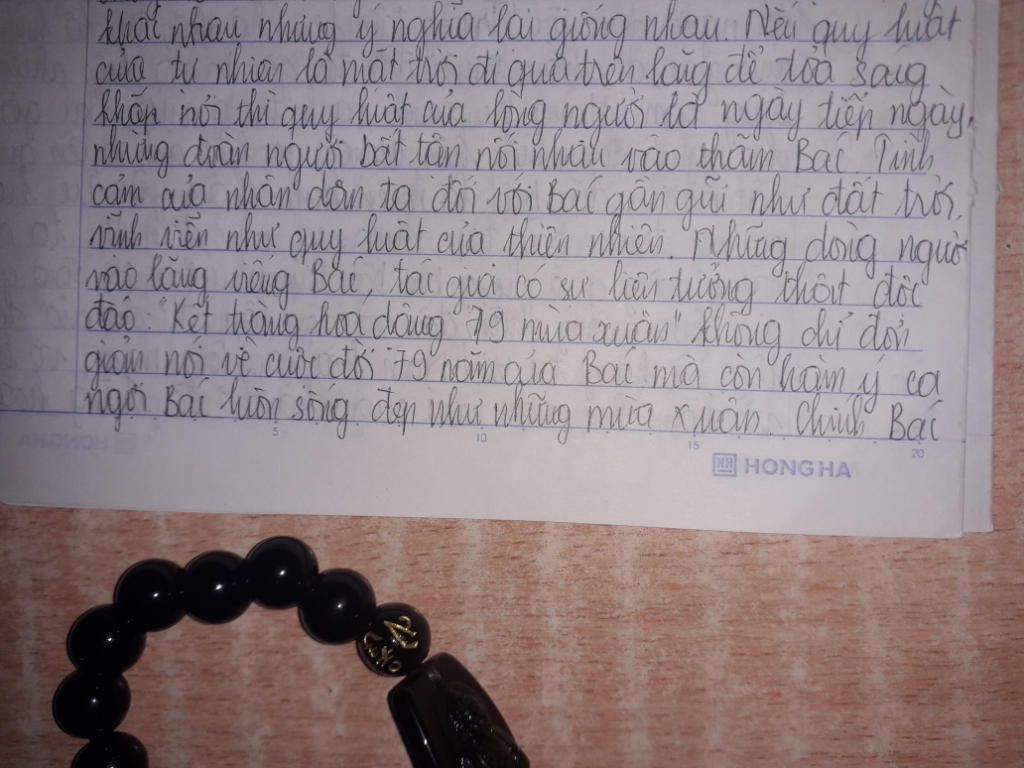 khác nhau nhưng ý nghĩa lại giống nhau. Nếu quy luật
của tự nhiên là mặt trời đi qua trên lăng để tỏa sáng
khắp nơi thì quy luật của lòng người là ngày tiếp ngày,
những đoàn người bất tận nối nhau vào thăm Bác. Tình
cảm của nhân dân ta đối với Bác gần gũi như đất trời,
vĩnh viễn như quy luật của thiên nhiên. Những dòng người
vào lăng viếng Bác, tác giả có sự liên tưởng thật độc
đáo: "Kết tràng hoa dâng 79 mùa xuân" không chỉ đơn
giản nói về cuộc đời 79 năm của Bác mà còn hàm ý ca
ngợi Bác luôn sống đẹp như những mùa xuân. Chính Bác
5 10 15 20
HONG HA